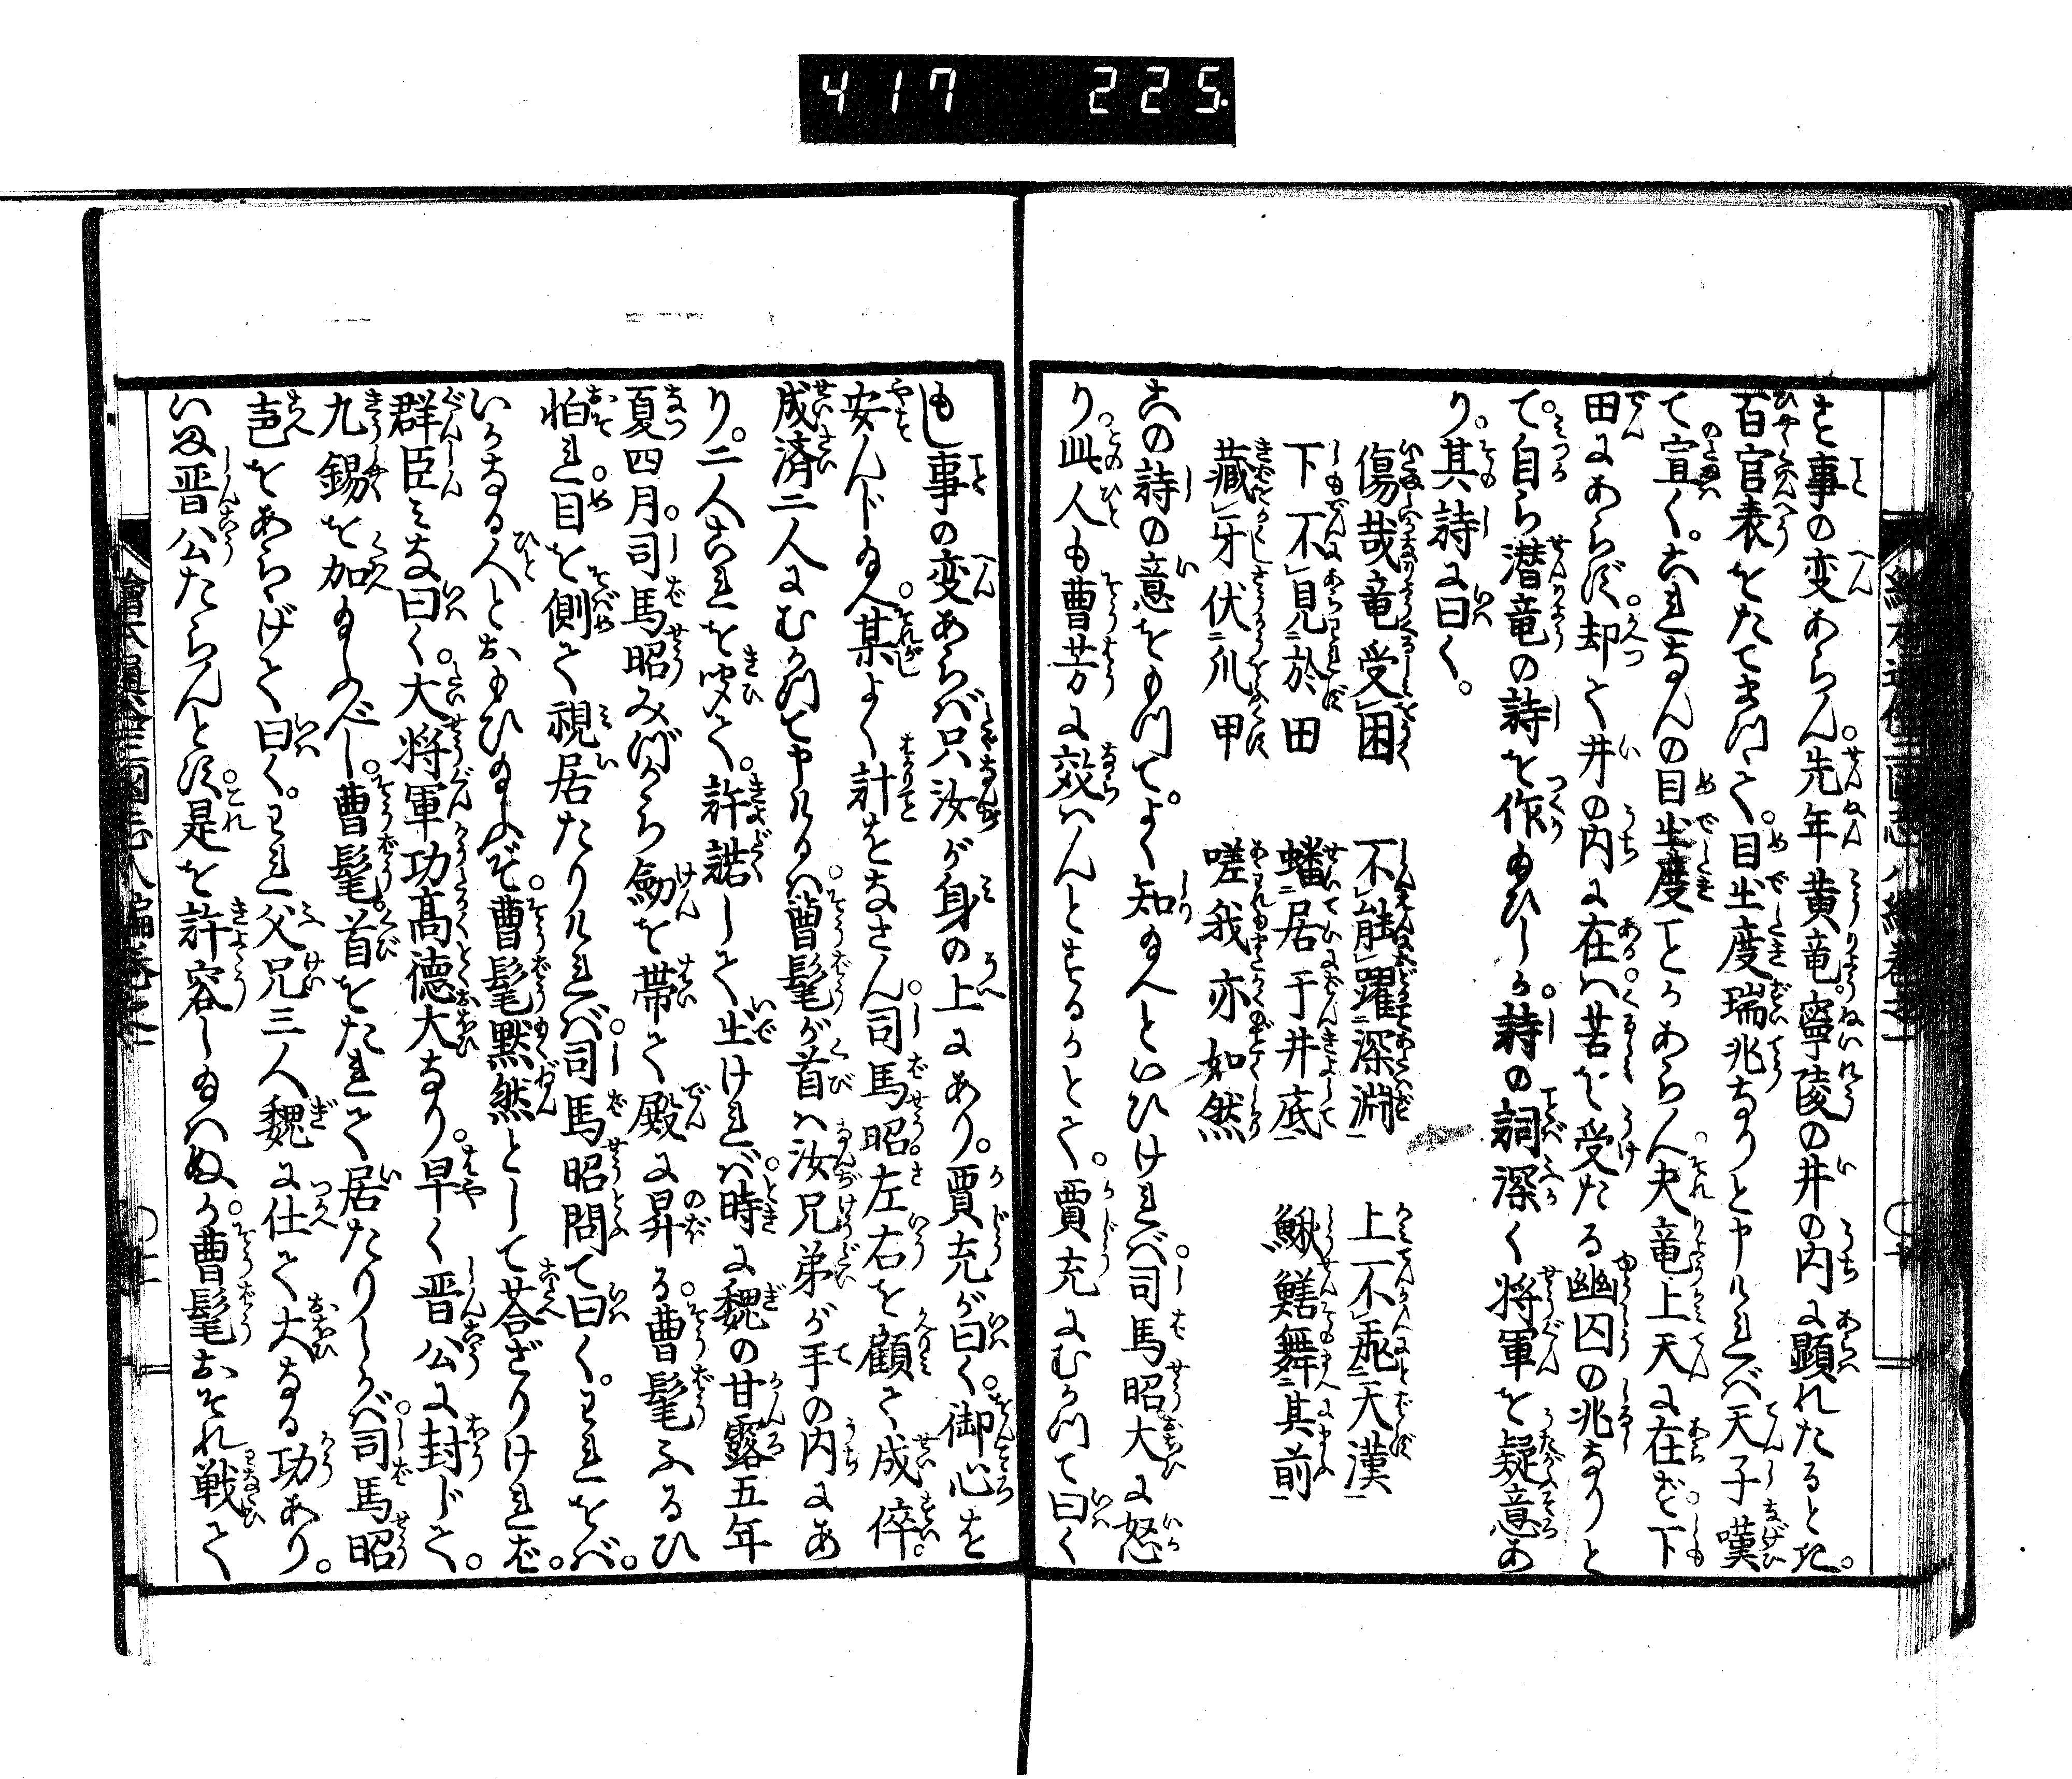 417 225
さも事の変あらん。先年黄竜。寧陵の井の内に顕れたるとき。
百官表をたてまつて。目出度瑞兆なりと申ければ天子嘆
て宣く。これなんの目出度ことかあらん。夫竜上天に在ず。下
田にあらず。却て井の内に在。は苦を受たる幽囚の兆なりと
て。自ら潜竜の詩を作給ひしが。詩の詞深く将軍を疑意あ
り。其詩に曰く。
傷哉竜受困　不能躍深淵　上不飛天漢
下不見於田　蟠居于井底　鰍鱔舞其前
蔵牙伏爪甲　嗟我亦如然
この詩の意をもつて。よく知給へといひければ。司馬昭。大に怒
り。此人も曹芳に效はんとするかとて。賈充にむかつて曰く
もし事の変あらば只汝が身の上にあり。賈充が曰く。御心を
安んじ給へ。某よく計をなさん。司馬昭。左右を顧て成倅。
成済二人にむかつて申けるは。曹髦が首は汝兄弟が手の内にあ
り。二人これを聞て。許諾して出ければ。時に魏の甘露五年
夏四月。司馬昭みづから劔を帯て殿に昇る。曹髦ふるひ
怕れ。目を側て視居たりければ。司馬昭問て曰く。われをば。
いかなる人とおもひ給ふぞ。曹髦黙然として答ざりければ。
群臣みな曰く。大将軍功高徳大なり。早く晋公に封じて。
九錫を加給ふべし。曹髦。首をたれて居たりしかば。司馬昭
声をあらゝげて曰く。われ父兄三人魏に仕て大なる功あり。
いま晋公たらんとす。是を許容し給はぬか。曹髦おそれ戦て